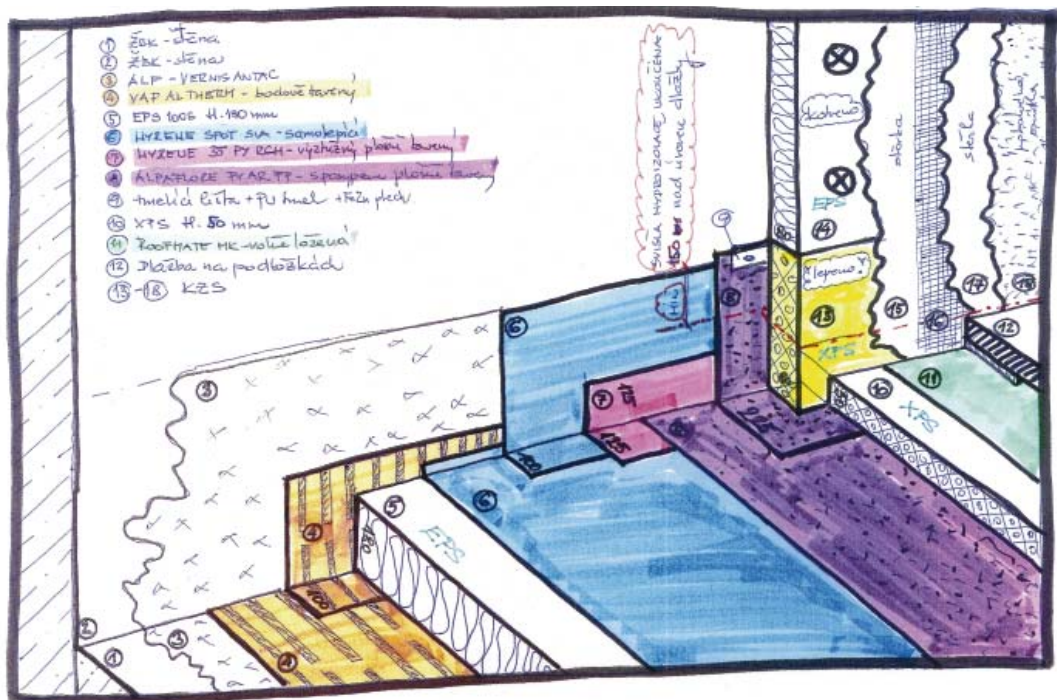 ① ŽBK - stěna
② ŽBK - stěna
③ ALP - VERNIS ANTAC
④ VAP AL THERM - bodově tavený
⑤ EPS 100S tl. 180 mm
⑥ HYRENE SPOT SVA - samolepící
⑦ HYRENE 35 PY RCH - výztužný plošně tavený
⑧ ALPAFLORE PY AR FP - plošně tavený
⑨ tmelící lišta + PU tmel +
⑩ XPS tl. 50 mm
⑪ ROOFMATE MK - volně ložená
⑫ Dlažba na podložkách
⑬ - ⑱ KZS
SVISLÁ HYDROIZOLACE UKONČENA
150 nad úrovní dlažby
kotveno
EPS
⑭
lepeno!
⑬
XPS
stěrka
⑮
⑯
stěrka
⑰
⑱
⑫
⑨
⑧
MIN
⑥
⑦
⑧
⑩
XPS
⑪
③
120
⑥
④
⑤
180
EPS
100
②
①
③
④